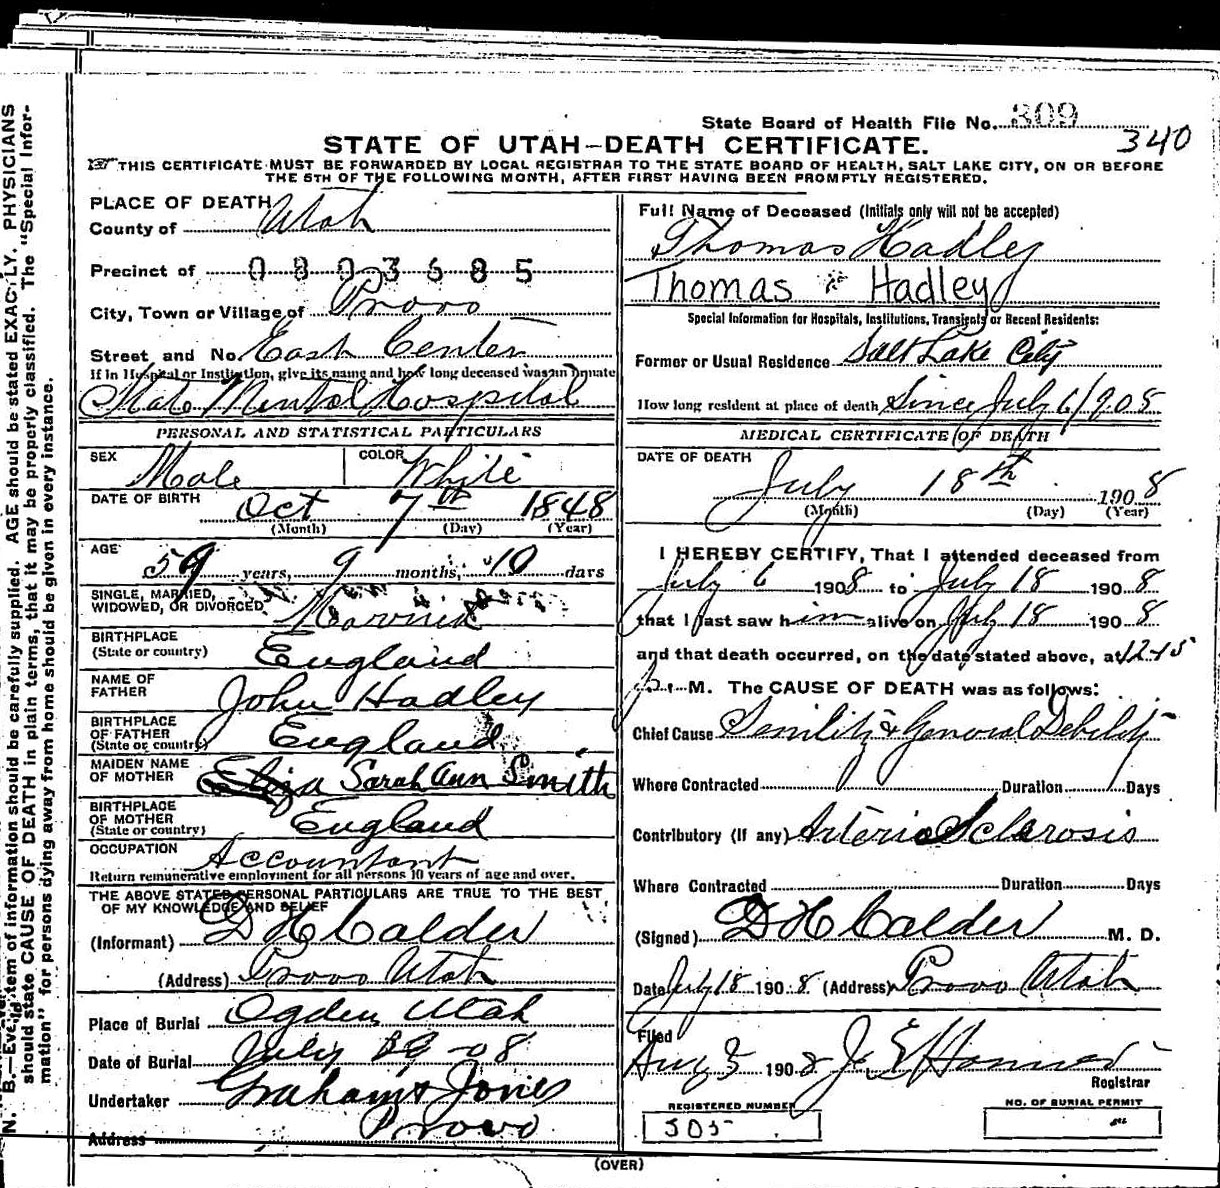 State Board of Health File No. 309
340
STATE OF UTAH—DEATH CERTIFICATE.
THIS CERTIFICATE MUST BE FORWARDED BY LOCAL REGISTRAR TO THE STATE BOARD OF HEALTH, SALT LAKE CITY, ON OR BEFORE
THE 5TH OF THE FOLLOWING MONTH, AFTER FIRST HAVING BEEN PROMPTLY REGISTERED.
PLACE OF DEATH
County of Utah
Precinct of 0803685
City, Town or Village of Provo
Street and No. East Center
If in Hospital or Institution, give its name and how long deceased was an inmate
State Mental Hospital
PERSONAL AND STATISTICAL PARTICULARS
SEX Male COLOR White
DATE OF BIRTH Oct 7th 1848
(Month) (Day) (Year)
AGE 59 years, 9 months, 10 days
SINGLE, MARRIED,
WIDOWED, OR DIVORCED Married
BIRTHPLACE
(State or country) England
NAME OF
FATHER John Hadley
BIRTHPLACE
OF FATHER
(State or country) England
MAIDEN NAME
OF MOTHER Eliza Sarah Ann Smith
BIRTHPLACE
OF MOTHER
(State or country) England
OCCUPATION Accountant
Return remunerative employment for all persons 10 years of age and over.
THE ABOVE STATED PERSONAL PARTICULARS ARE TRUE TO THE BEST
OF MY KNOWLEDGE AND BELIEF
(Informant) D H Calder
(Address) Provo Utah
Place of Burial Ogden, Utah
Date of Burial July -08
Undertaker Graham & Jones
Address Provo
Full Name of Deceased (Initials only will not be accepted)
Thomas Hadley
Thomas Hadley
Special Information for Hospitals, Institutions, Transients or Recent Residents:
Former or Usual Residence Salt Lake City
How long resident at place of death Since July 6/1908
MEDICAL CERTIFICATE OF DEATH
DATE OF DEATH
July 18th 1908
(Month) (Day) (Year)
I HEREBY CERTIFY, That I attended deceased from
July 6 1908 to July 18 1908
that I last saw him alive on July 18 1908
and that death occurred, on the date stated above, at 12-15
M. The CAUSE OF DEATH was as follows:
Chief Cause Senility & General Debility
Where Contracted Duration Days
Contributory (If any) Arterio Sclerosis
Where Contracted Duration Days
(Signed) D H Calder M. D.
Date July 18 1908 (Address) Provo Utah
Filed
Aug 3 1908
Registrar
REGISTERED NUMBER
305
NO. OF BURIAL PERMIT
(OVER)
N. B.—Every item of information should be carefully supplied. AGE should be stated EXACTLY. PHYSICIANS
should state CAUSE OF DEATH in plain terms, that it may be properly classified. The "Special Infor-
mation" for persons dying away from home should be given in every instance.